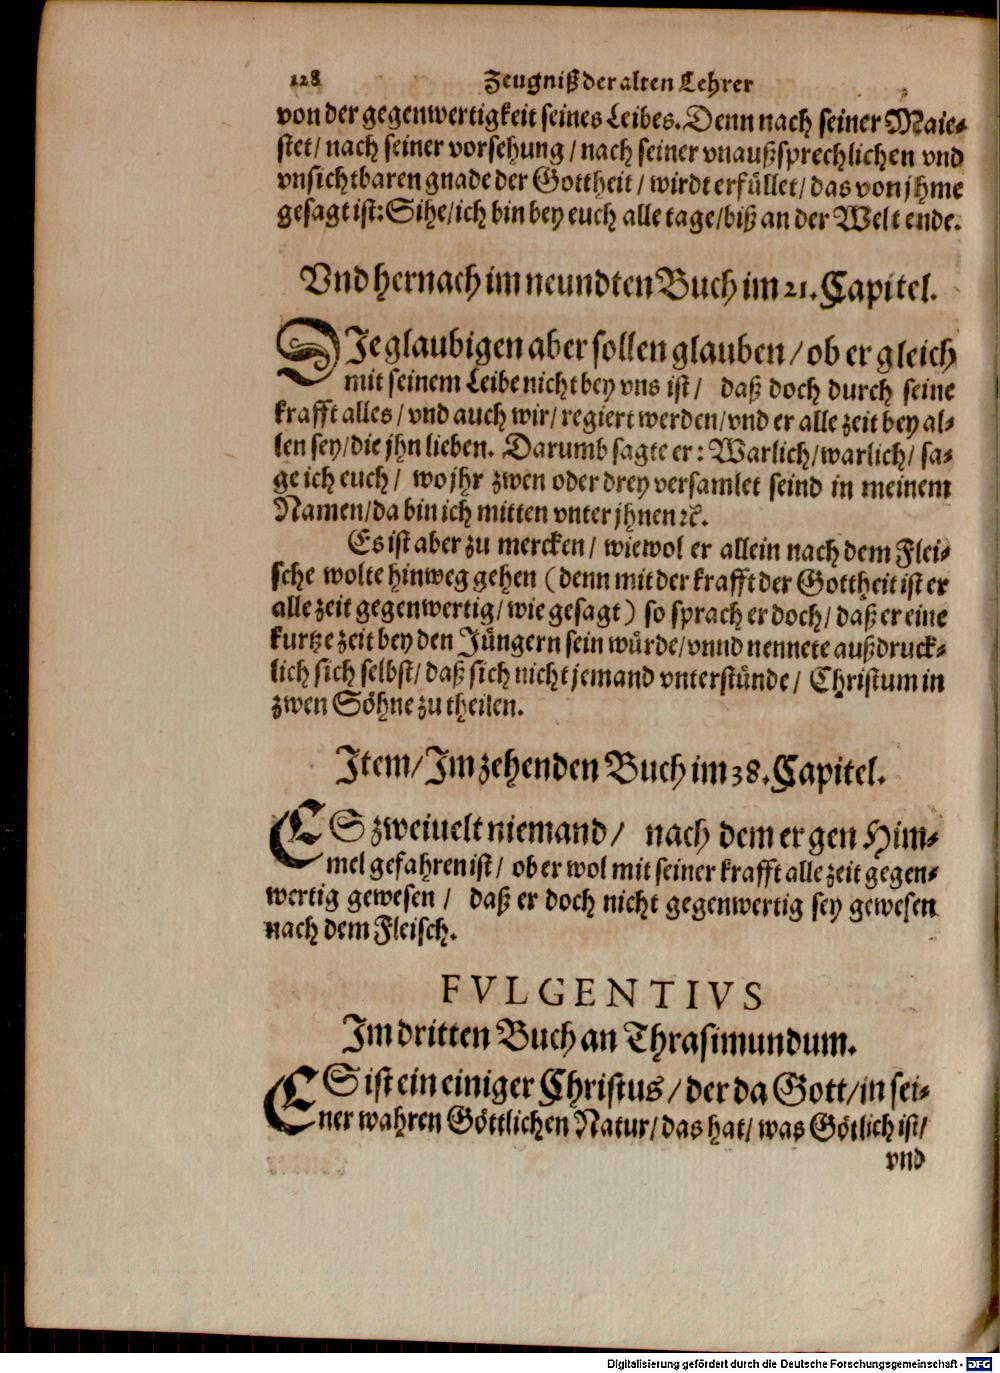 128 Zeugniß der alten Lehrer
von der gegenwertigkeit seines Leibes. Denn nach seiner Maie-
stet/ nach seiner vorsehung/ nach seiner vnaußsprechlichen vnd
vnsichtbaren gnade der Gottheit/ wirdt erfüllet/ das von jhme
gesagt ist: Sihe/ ich bin bey euch alle tage/ biß an der Welt ende.
Vnd hernach im neundten Buch im 21. Capitel.
DIe glaubigen aber sollen glauben/ ob er gleich
mit seinem Leibe nicht bey vns ist/ daß doch durch seine
krafft alles/ vnd auch wir/ regiert werden/ vnd er alle zeit bey al-
len sey/ die jhn lieben. Darumb sagte er: Warlich/ warlich/ sa-
ge ich euch/ wo jhr zwen oder drey versamlet seind in meinem
Namen/ da bin ich mitten vnter jhnen ꝛc.
Es ist aber zu mercken/ wiewol er allein nach dem Flei-
sche wolte hinweg gehen (denn mit der krafft der Gottheit ist er
alle zeit gegenwertig/ wie gesagt) so sprach er doch/ daß er eine
kurtze zeit bey den Jüngern sein würde/ vnnd nennete außdruck-
lich sich selbst/ daß sich nicht jemand vnterstünde/ Christum in
zwen Söhne zu theilen.
Item/ Im zehenden Buch im 38. Capitel.
ES zweiuelt niemand/ nach dem er gen Him-
mel gefahren ist/ ob er wol mit seiner krafft alle zeit gegen-
wertig gewesen/ daß er doch nicht gegenwertig sey gewesen
nach dem Fleisch.
FVLGENTIVS
Im dritten Buch an Thrasimundum.
ES ist ein einiger Christus/ der da Gott/ in sei-
ner wahren Göttlichen Natur/ das hat/ was Götlich ist/
vnd
Digitalisierung gefördert durch die Deutsche Forschungsgemeinschaft - DFG